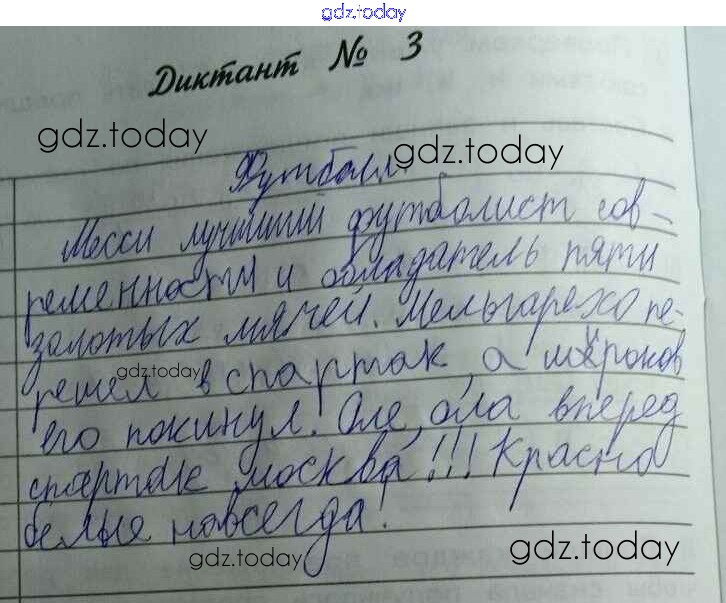 gdz.today
Диктант № 3
gdz.today
gdz.today
Футбол
Месси лучший футболист сов-
ременности и обладатель пяти
золотых мячей. Мельгарехо пе-
gdz.today
решел в спартак, а широков
его покинул! Оле, ола вперед
спартак москва!!! Красно
белые навсегда!
gdz.today
gdz.today